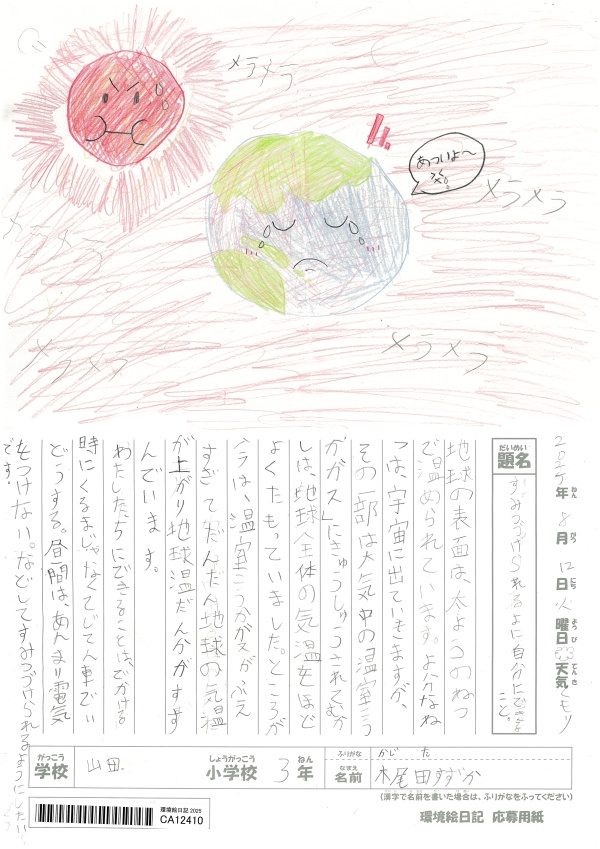 メラメラ
あついよ〜
メラメラ
メラメラ
メラメラ
メラメラ
2025年 8月 12日 火曜日 天気 くもり
ねん がつ にち ようび てんき
だいめい
題名
すみつづけられるよに自分にできること。
地球の表面は、太ようのねつ
で温められています。よぶんなね
つは、宇宙に出ていきますが、
その一部は大気中の「温室こう
かガス」にきゅうしゅうされてむか
しは、地球全体の気温をほど
よくたもっていました。ところが
今は、温室こうかガスがふえ
すぎてだんだん地球の気温
が上がり地球温だん分がすす
んでいます。
わたしたちにできることは、でかける
時にくるまじゃなくてじてん車でい
どうする。昼間は、あんまり電気
をつけない。などしてすみつづけられるようにしたい
です。
がっこう しょうがっこう ねん ふりがな かじ た
学校 山田 小学校 3年 なまえ 名前 梶田すずか
(漢字で名前を書いた場合は、ふりがなをふってください)
環境絵日記 2025
CA12410
環境絵日記 応募用紙